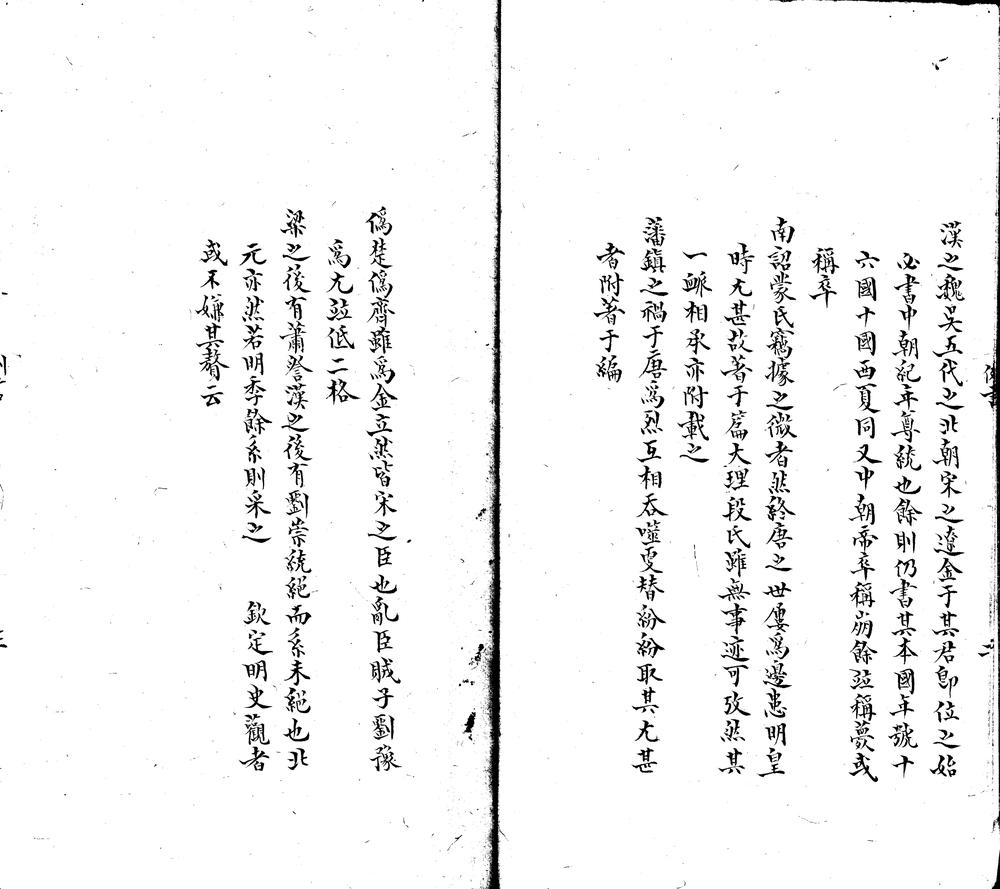 漢之魏吳五代之北朝宋之遼金于其君卽位之始
必書中朝紀年尊統也餘則仍書其本國年號十
六國十國西夏同又中朝帝卒稱崩餘竝稱薨或
稱卒
南詔蒙氏竊據之微者然終唐之世屢爲邊患明皇
時尤甚故著于篇大理段氏雖無事迹可攷然其
一脈相承亦附載之
藩鎮之禍于唐爲烈互相吞噬更替紛紛取其尤甚
者附著于編
僞楚僞齊雖爲金立然皆宋之臣也亂臣賊子劉豫
爲尤竝低二格
梁之後有蕭詧漢之後有劉崇統絕而系未絕也北
元亦然若明季餘系則采之　欽定明史觀者
或不嫌其贅云